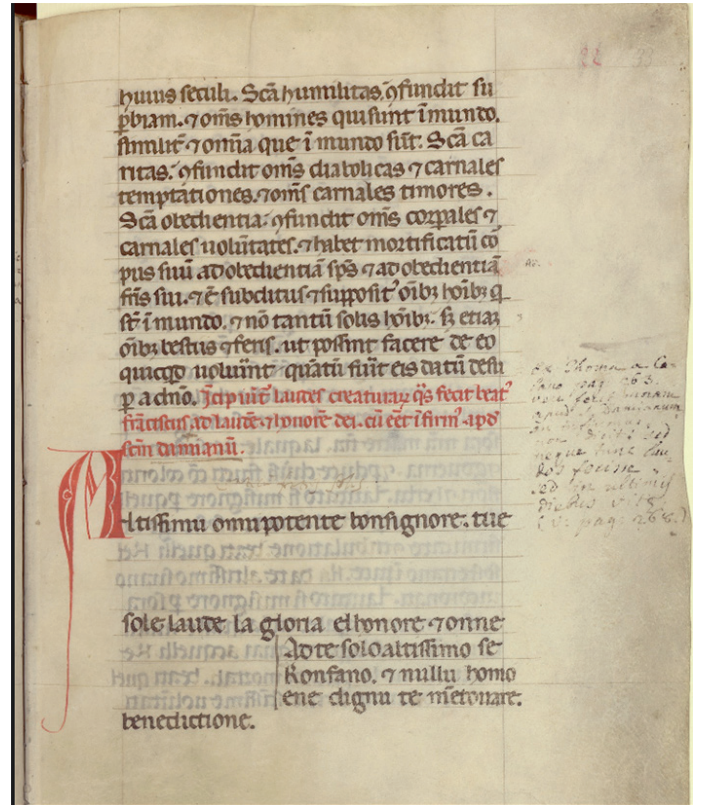 huius seculi. Sc̄a humilitas ꝯfundit su
ꝑbiam. ⁊ om̄s homines qui sunt ī mundo.
similit᷑ ⁊ om̄ia que ī mundo sūt. Sc̄a ca
ritas. ꝯfundit om̄s diabolicas ⁊ carnales
temptationes. ⁊ om̄s carnales timores.
Sc̄a obedientia. ꝯfundit om̄s corꝑales ⁊
carnales uolūtates. ⁊ habet mortificatū cō
pus suū ad obedientiā sp̄s ⁊ ad obedientiā
fr̄is sui. ⁊ ē subditus ⁊ supposit᷒ oībꝫ hoībꝫ q̄
st̄ ī mundo. ⁊ nō tantū solis hoībꝫ. sꝫ etiaꝫ
oībꝫ bestiis ⁊ feris. ut possint facere de eo
quicqd uolu̅int quātū fūit eis datū desu
ꝑ a dn̄o. Īcipiūt laudes creaturaꝝ q̄s fecit beat᷒
frāciscus ad laudē ⁊ honorē dei. cū eēt ī firm᷒ apd
sc̄m damianū.
Altissimu omnipotente bonsignore. tue
sole laude la gloria elhonore ⁊ onne
Ad te solo altissimo se
Konfano. ⁊ nullu homo
ene dignu te mētouare.
benedictione.
22 33
Ex Thoma a Ce-
lano pag 263.